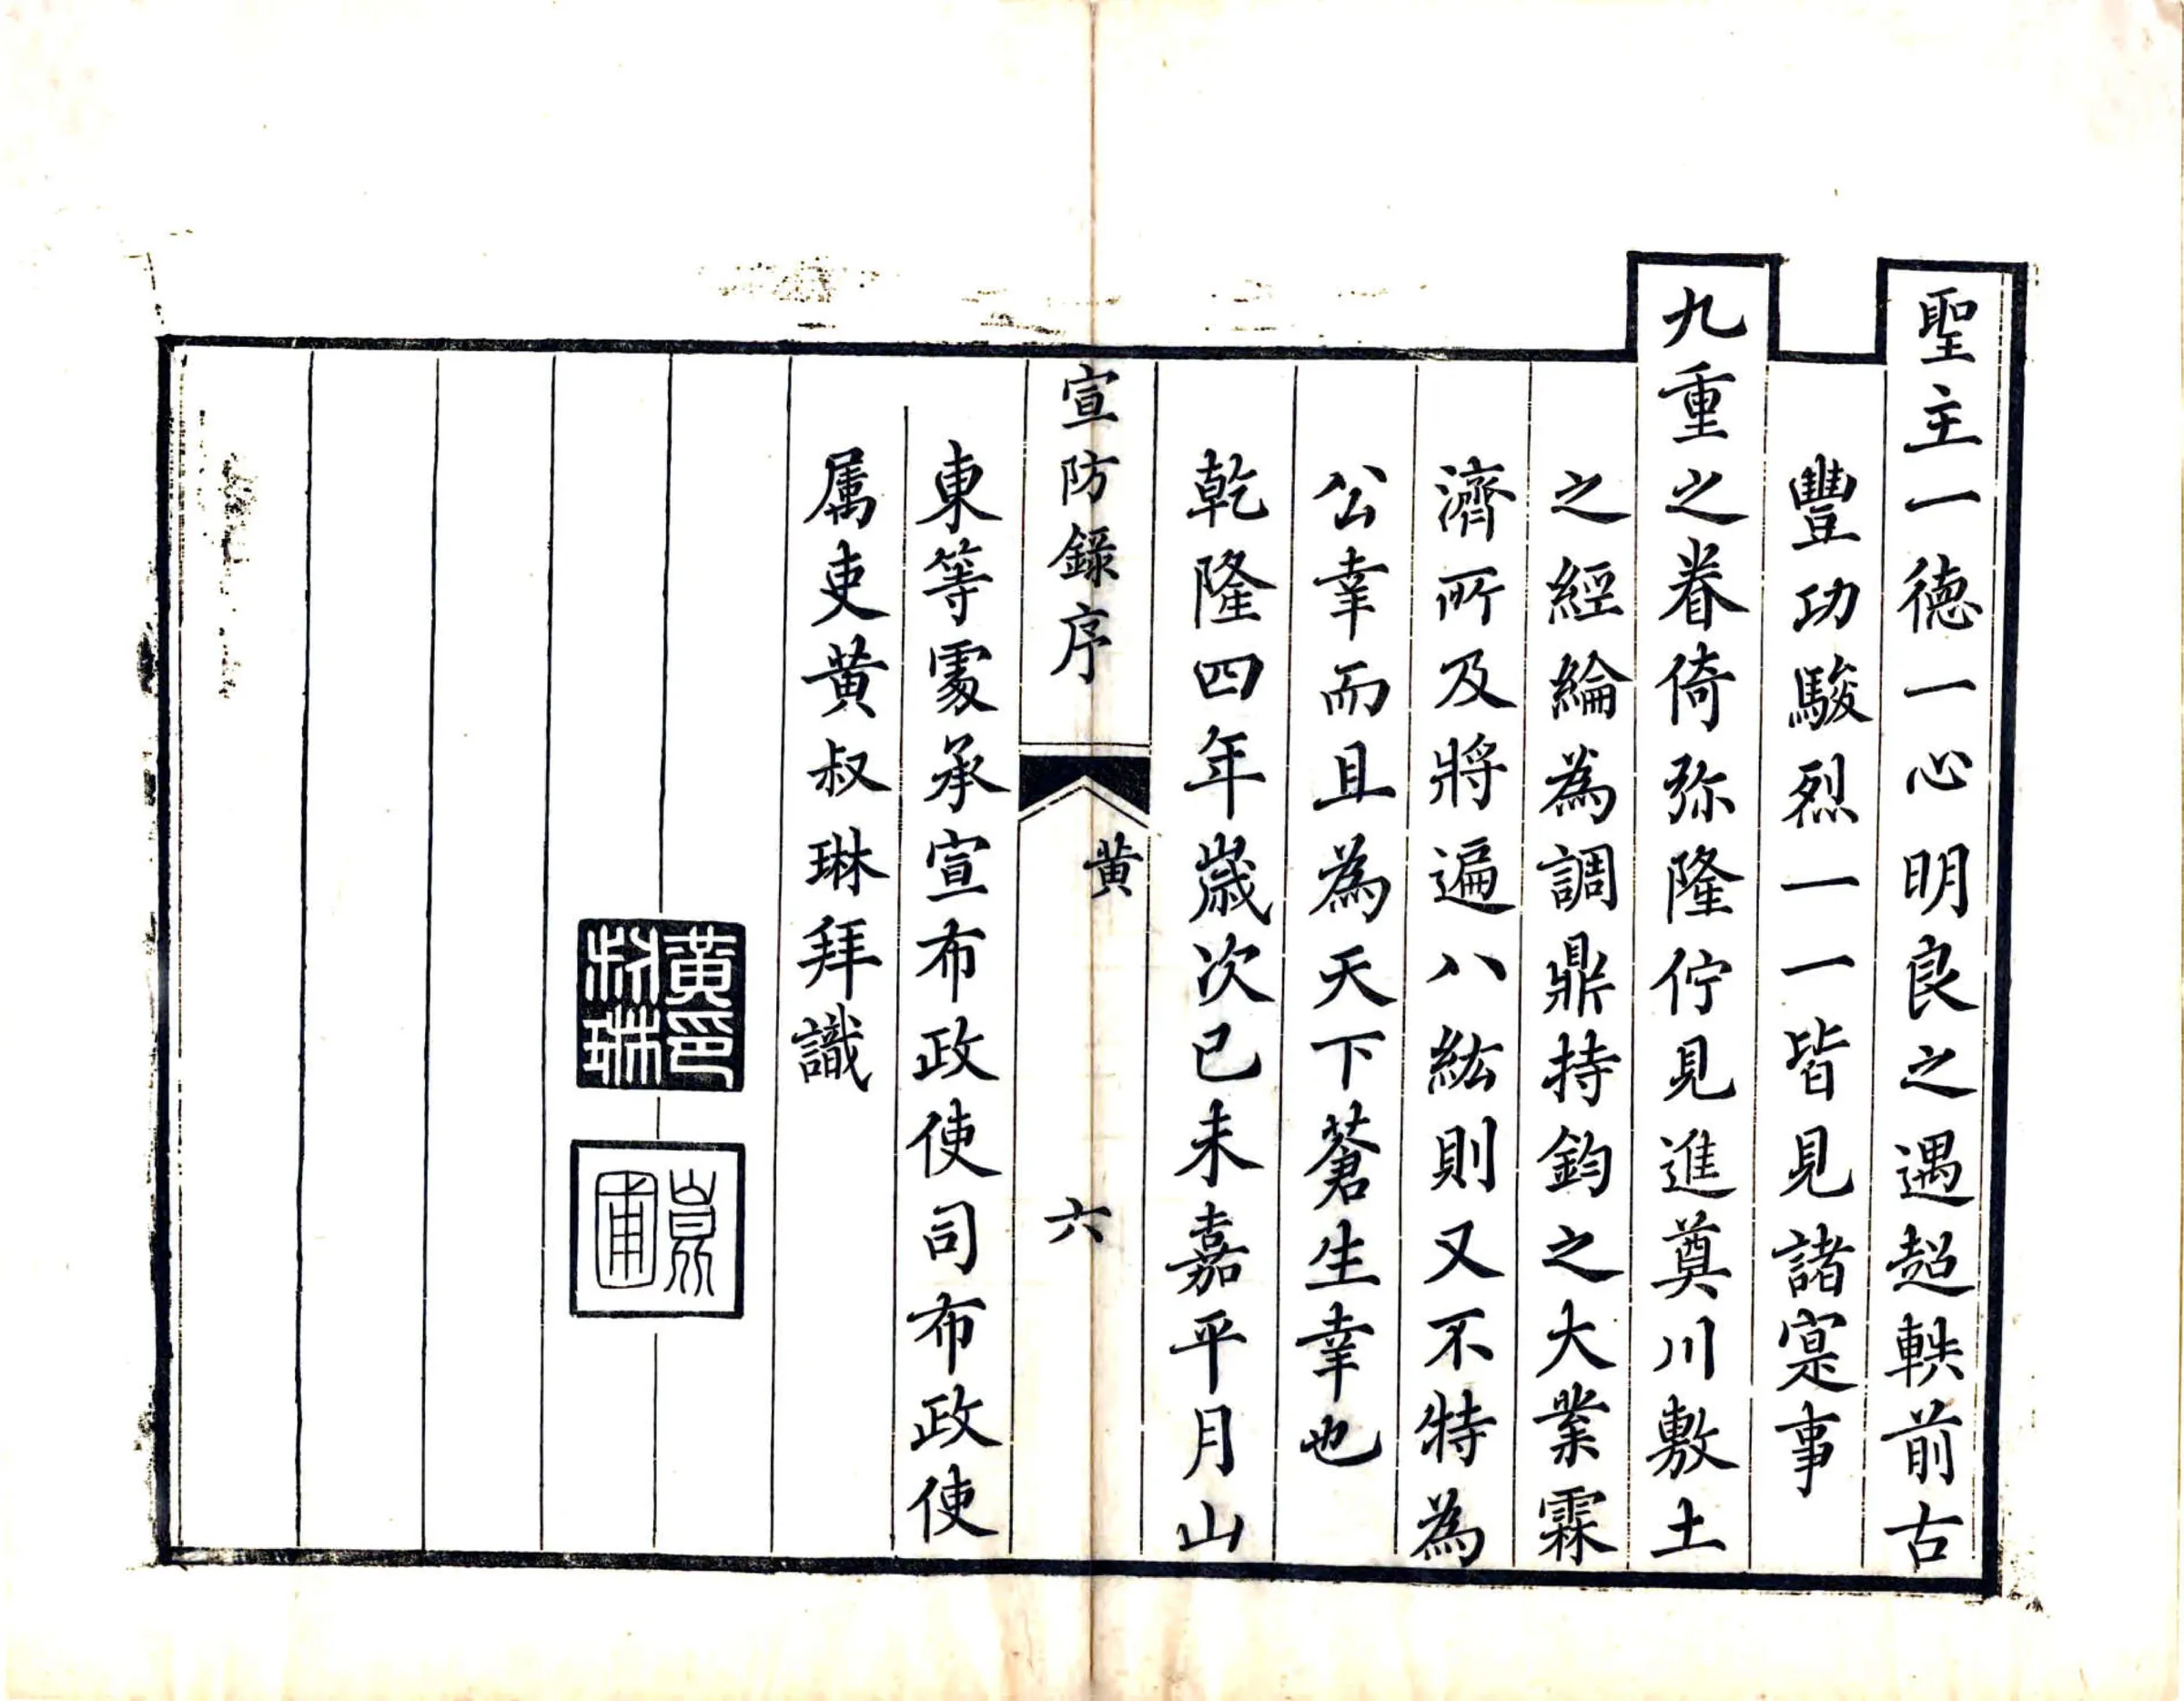 聖主一徳一心明良之遇超軼前古
豐功駿烈一一皆見諸寔事
九重之眷倚弥隆佇見進奠川敷土
之經綸為調鼎持鈞之大業霖
濟所及將遍八紘則又不特為
公幸而且為天下蒼生幸也
乾隆四年歲次己未嘉平月山
宣防錄序
黄
六
東等處承宣布政使司布政使
属吏黄叔琳拜識
黄叔琳印
崑圃